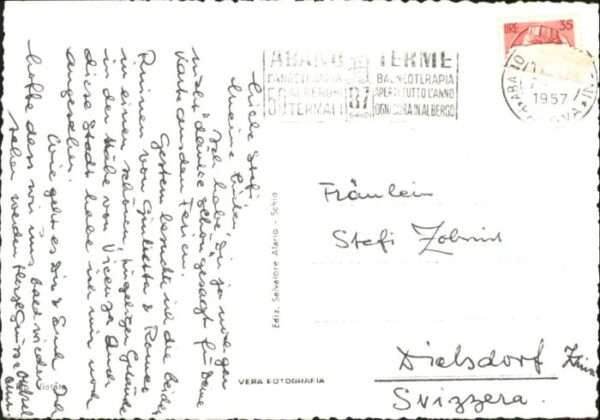 Liebe Stefi,
meine Lieben,
Ich habe Dir ja noch gar
nicht danke schön gesagt für Deine
Karte aus den Ferien.
Gestern besuchte ich die beiden
Ruinen von Giulietta & Romeo
in einem schönen, hügeligen Gelände
in der Nähe von Vicenza. Auch
diese Stadt habe ich mir noch
angesehen.
Wie geht es Dir & Euch. Ich
hoffe dass wir uns bald wieder
sehen werden. Herzl. Grüsse
ABANO TERME
BALNEOTERAPIA
ALBERGHI APERTI TUTTO L'ANNO
TERMALI OGNI CURA IN ALBERGO
LIRE 35
1957
Fräulein
Stefi
Dielsdorf
Svizzera.
Ediz. Salvatore - Schio
VERA FOTOGRAFIA